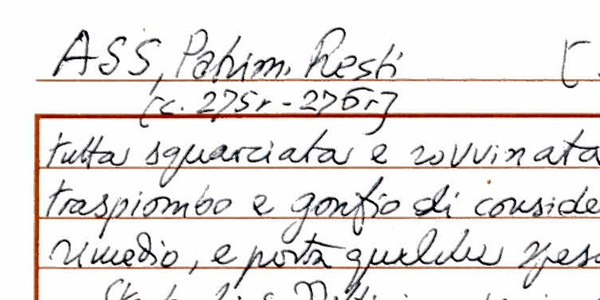 ASS, Patrim. Resti [.
[c. 275r - 276r]
tutta squarciata e rovvinata
traspiombo e gonfio di conside
rimedio, e porta qualche spesa